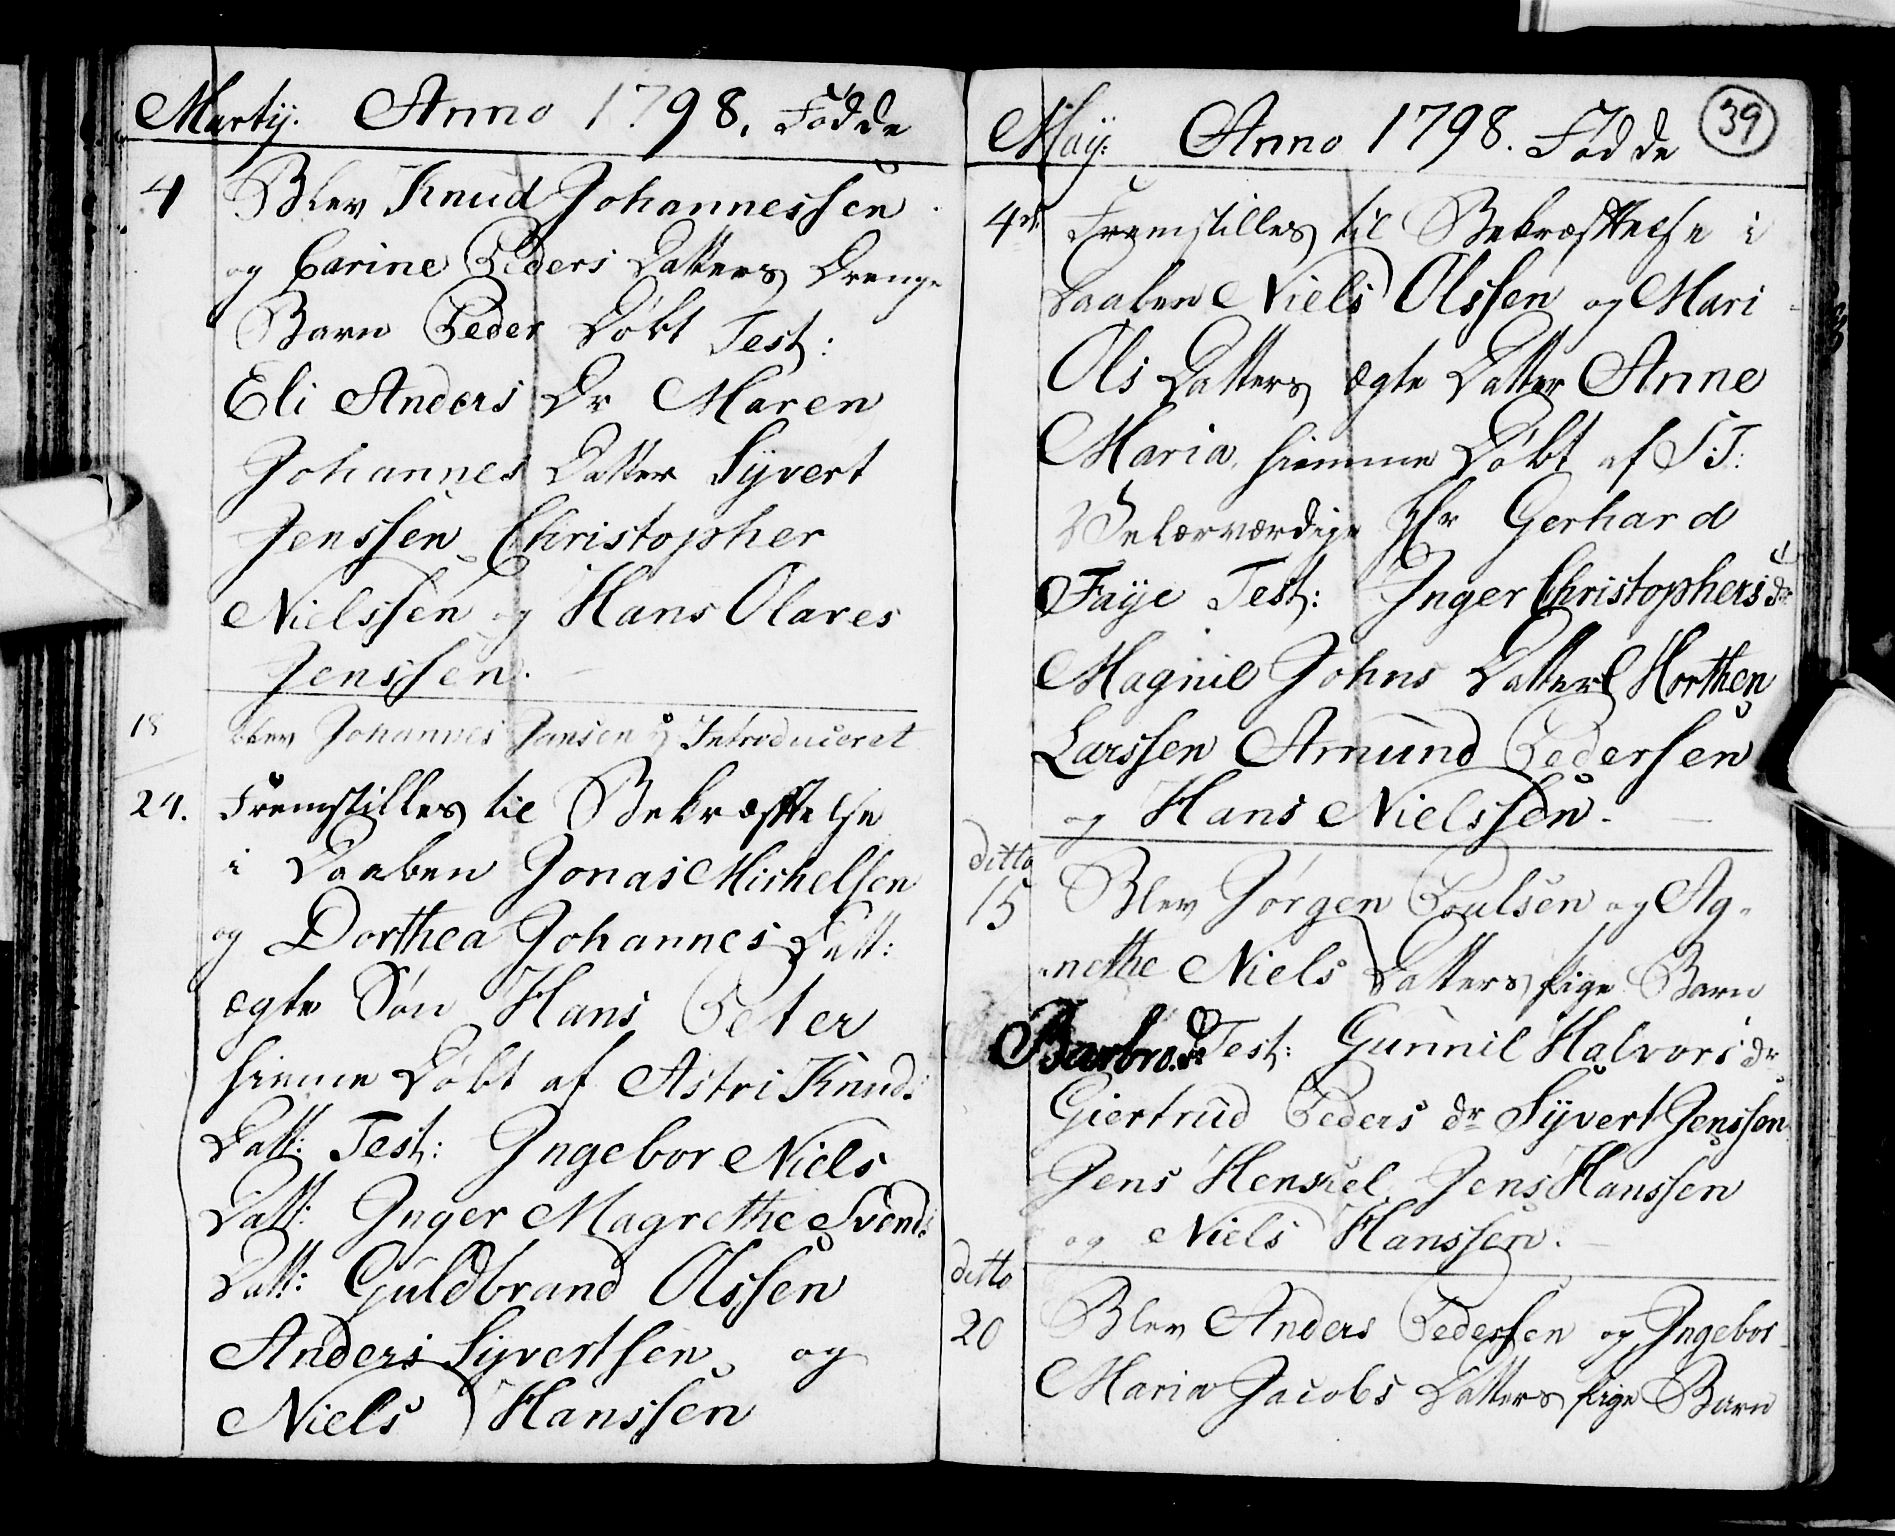 Martij. Anno 1798. Fødde
4 Blev Knud Johannessen
og Carine Peders Datters Drenge
Barn Peder Døbt Test:
Eli Anders Dr Maren
Johannes Datter Syvert
Jenssen Christopher
Nielssen og Hans Olares
Jenssen.
18 blev Johannes Jansen Introduceret
24. Fremstilles til Bekræftelse
i Daaben Jonas Michelsen
og Dorthea Johannes Datt:
ægte Søn Hans Peter
hiemme Døbt af Astri Knuds
Datt: Test: Ingebor Niels
Datt: Inger Magrethe Svends
Datt: Guldbrand Olssen
Anders Syvertsen og
Niels Hanssen
Maij: Anno 1798. Fødde 39
4de Fremstilles til Bekræftelse i
Daaben Niels Olssen og Mari
Ols Datters ægte Datter Anne
Maria hiemme Døbt af S.T:
Velærværdige Hr Gerhard
Faye Test: Inger Christophers dr
Magnil Johns Datter Morthen
Larssen Amund Pederssen
og Hans Nielssen.
ditto
15 Blev Jørgen Poulsen og Ag-
nethe Niels Datters Pige Barn
Barbro. Test: Gunnil Halvors dr
Giertrud Peders dr Syvert Jenssen
Jens Henrkel Jens Hanssen
og Niels Hanssen.
ditto
20 Blev Anders Pederssen og Ingebor
Maria Jacobs Datters Pige Barn